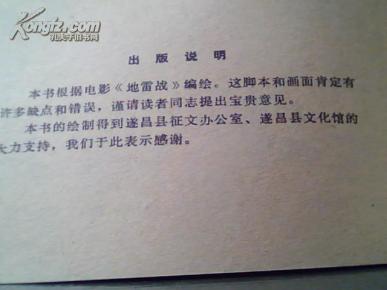 Kongfz.com
孔夫子旧书网
出版说明
本书根据电影《地雷战》编绘。这脚本和画面肯定有
许多缺点和错误，谨请读者同志提出宝贵意见。
本书的绘制得到遂昌县征文办公室、遂昌县文化馆的
大力支持，我们于此表示感谢。